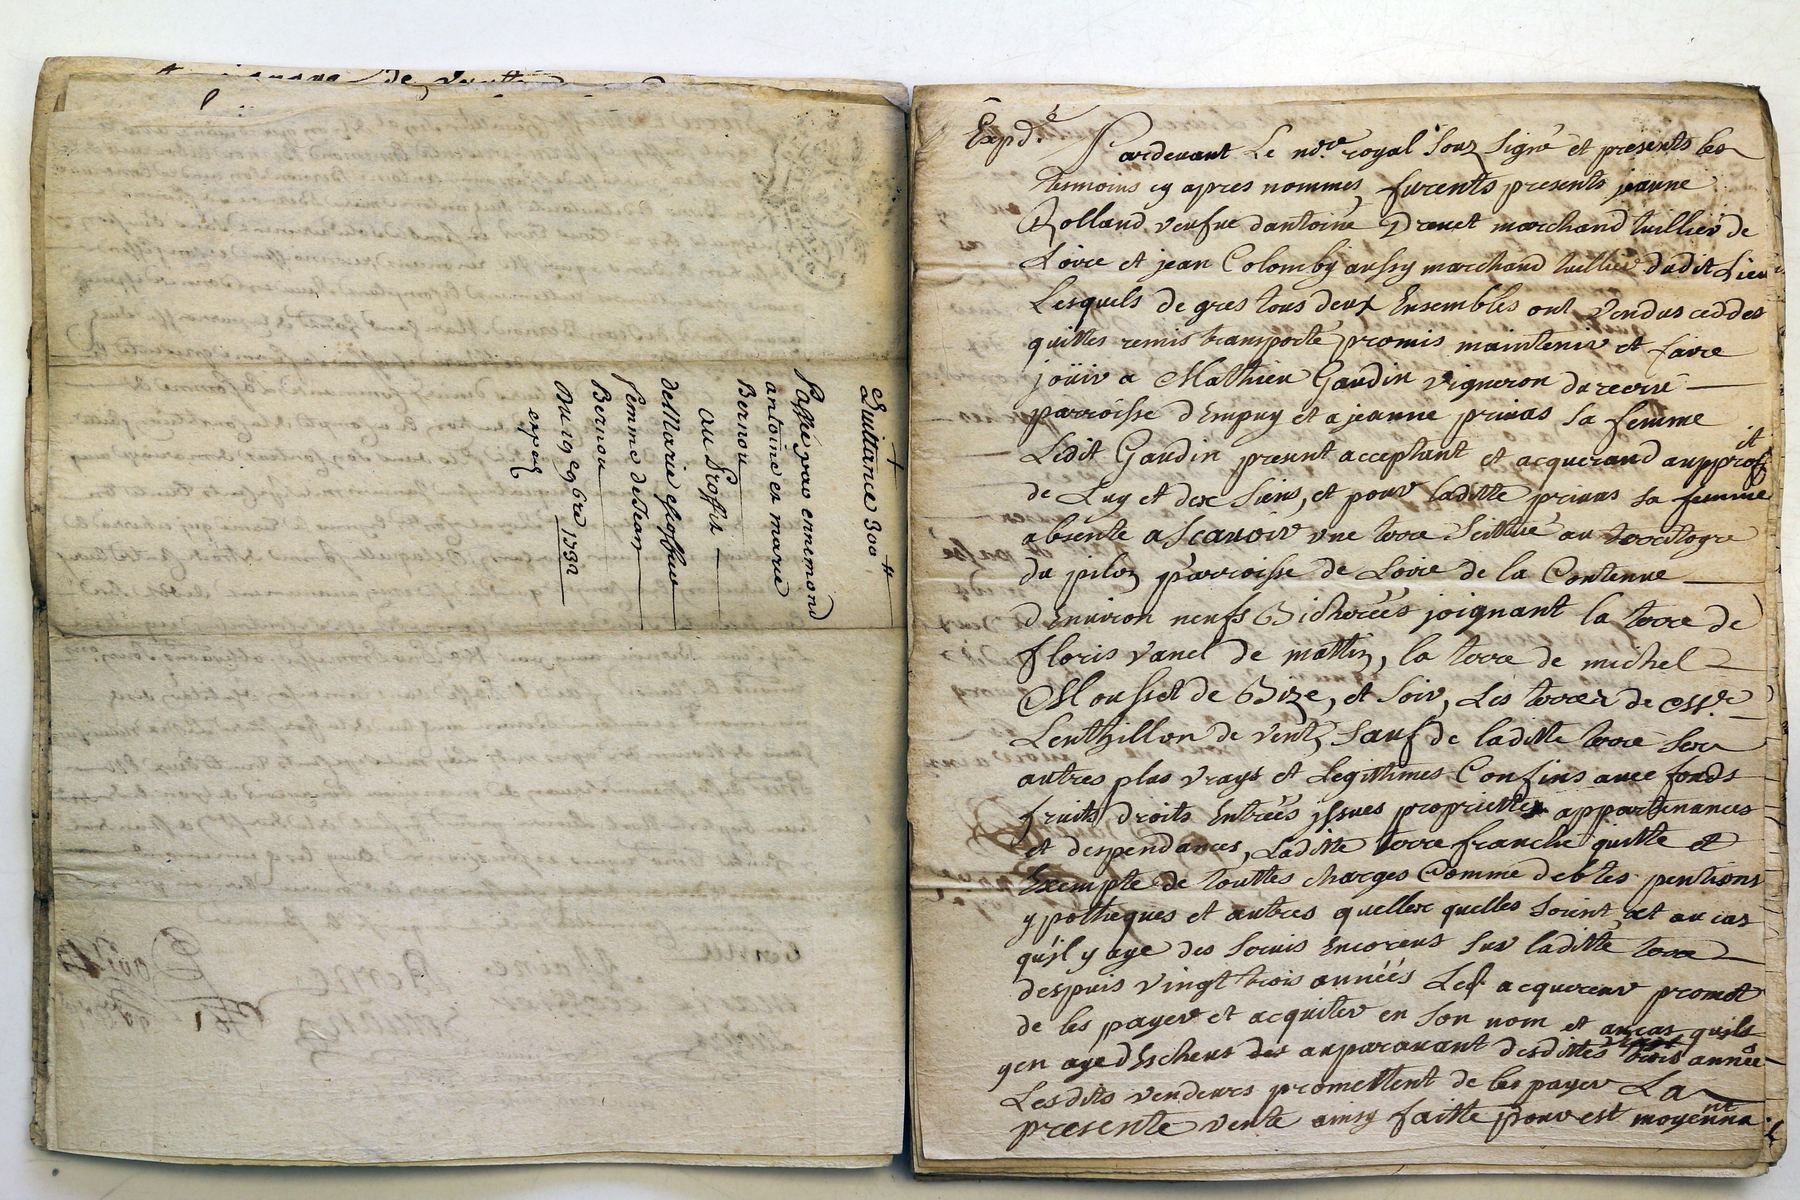 Quittance 300 ₶
Passée par ennemond
antoine et marie
Bernou
au Proffit
de Marie
femme de Jean
Bernou
Du 19 9bre 1732
exped
Exp.d.é
Pardevant Le no.re royal Souz Signé et presents les
tesmoins cy apres nommes furents presents jeanne
Rolland veufue dantoine Drevet marchand tuillier de
Loire et jean Colomby aussy marchand tuillier dudit Lieu
Lesquels de gres tous deux Ensembles ont vendus ceddes
quittes remis transporté promis maintenir et faire
joüir a Mathieu Gaudin vigneron du recrué
parroisse dEmpuy et a jeanne privas sa femme
Ledit Gaudin present acceptant et acquerand aupproffit
de Luy et des Siens, et pour laditte privas sa femme
absente a Scavoir vne terre Scittué au
du piloz parroisse de Loire de la Contenue
dEnuiron neufs Bicherées joignant la terre de
floris vanel de mattin, la terre de michel
Mousset de Bize, et Soir, Les terres de
Lenthillon de vent, Sauf de laditte terre Ses
autres plus vrays et Legithimes Confins auec fonds
fruits droits Entrées jssues proprietés appartenances
et despendances, Laditte terre franche quitte et
Exempte de touttes charges Comme debtes pentions
ypotheques et autres quelles quelles Soient, et au cas
qu'il y aye des Seruis Encoreus Sur laditte terre
despuis vingt trois années Led. acquereur promet
de les payer et acquiter en Son nom et au cas quils
y en aye dEscheus des auparauant desdittes vingt trois années
Lesdits vendeurs promettent de les payer La
presente vente ainsy faitte pour est moyennant